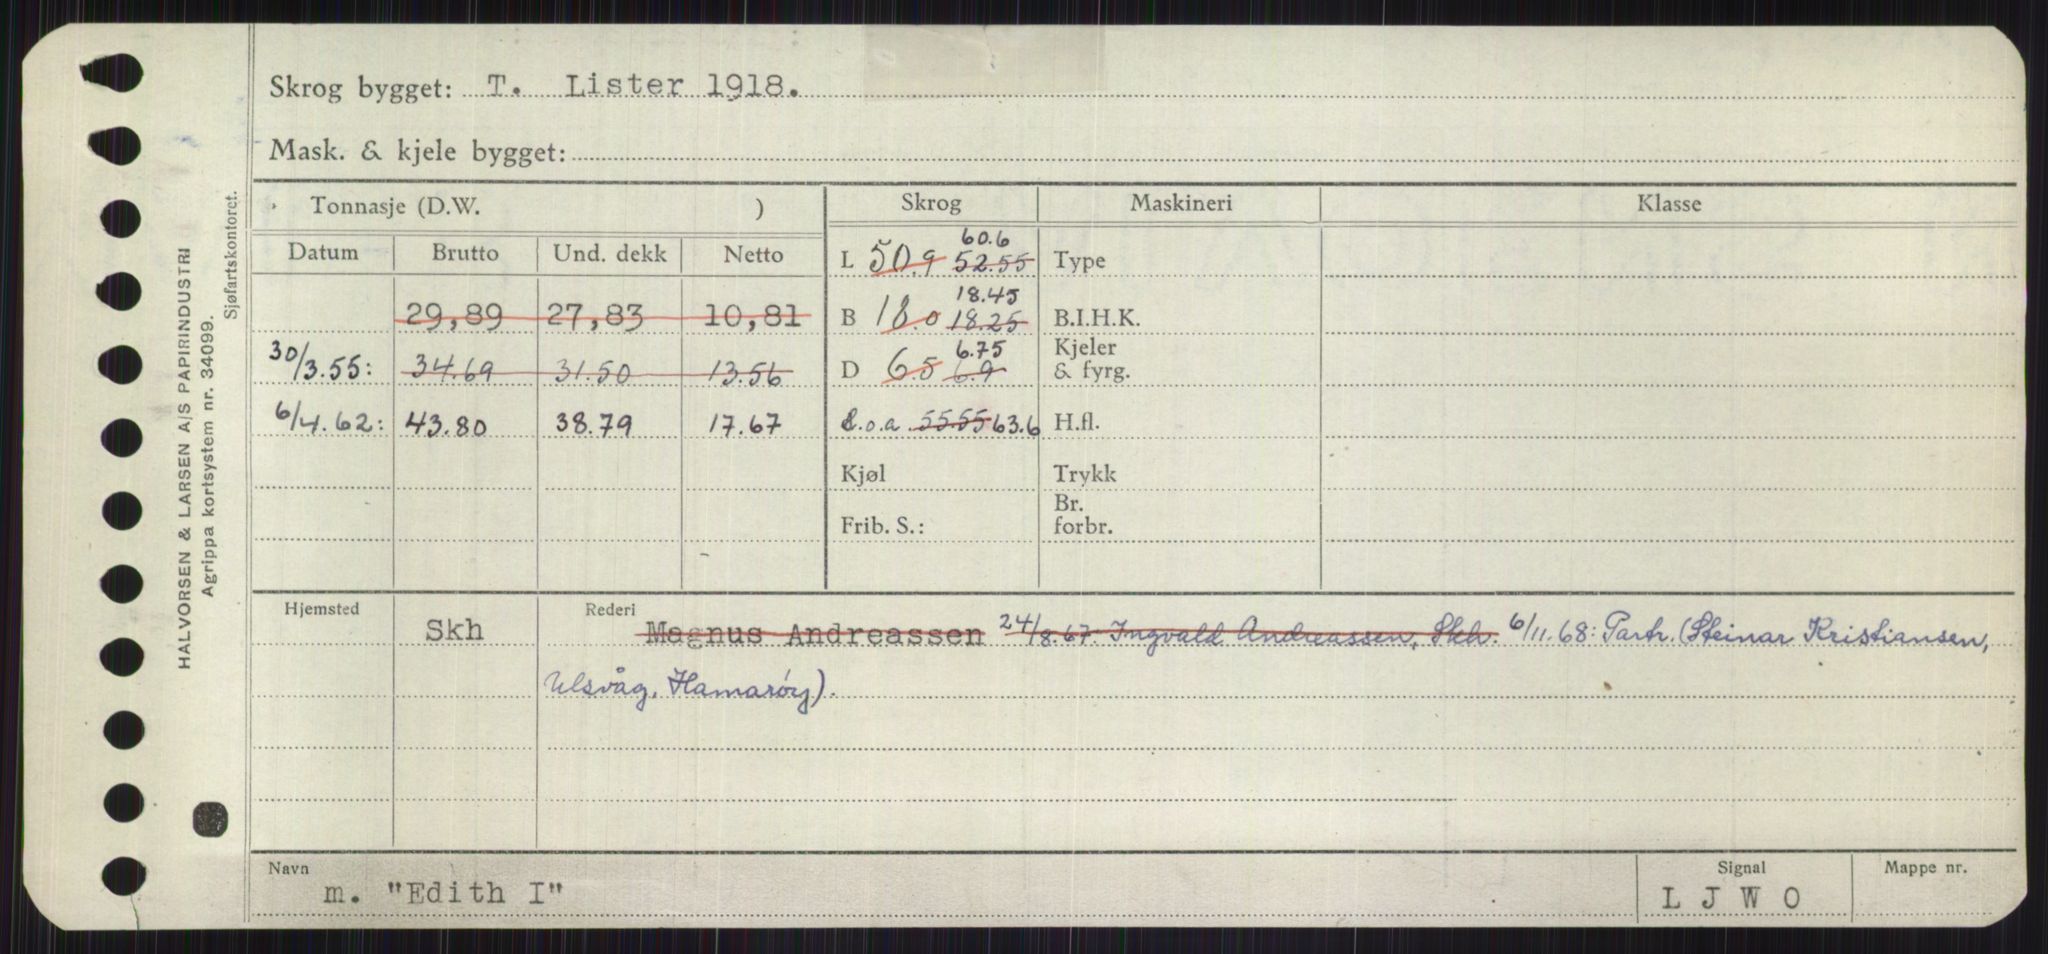 Skrog bygget: T. Lister 1918.
Mask. & kjele bygget:
Tonnasje (D.W. ) Skrog Maskineri Klasse
Datum Brutto Und. dekk Netto L 50.9 52.55 60.6 Type
29,89 27,83 10,81 B 18.0 18.25 18.45 B.I.H.K.
30/3.55: 34.69 31.50 13.56 D 6.5 6.9 6.75 Kjeler & fyrg.
6/4.62: 43.80 38.79 17.67 L.o.a. 55.55 63.6 H.fl.
Kjøl Trykk
Frib. S.: Br. forbr.
Hjemsted Skh Rederi Magnus Andreassen 24/8.67. Ingvald Andreassen, Skh. 6/11.68: Partr. (Steinar Kristiansen,
Ulsvåg, Hamarøy).
Navn Signal Mappe nr.
m. "Edith I" L J W O
HALVORSEN & LARSEN A/S PAPIRINDUSTRI
Agrippa kortsystem nr. 34099.
Sjøfartskontoret.